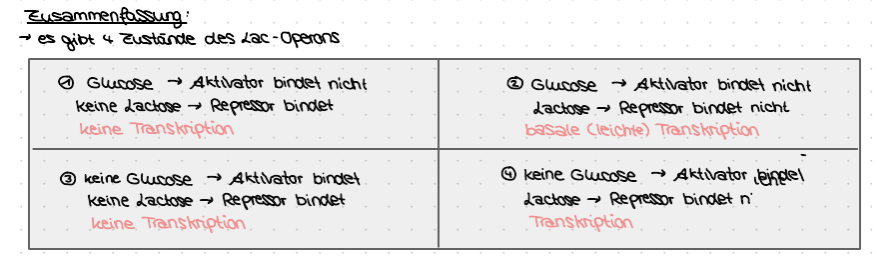 Zusammenfassung:
→ es gibt 4 Zustände des Lac-Operons
① Glucose → Aktivator bindet nicht
keine Lactose → Repressor bindet
keine Transkription
② Glucose → Aktivator bindet nicht
Lactose → Repressor bindet nicht
basale (leichte) Transkription
③ keine Glucose → Aktivator bindet
keine Lactose → Repressor bindet
keine Transkription
④ keine Glucose → Aktivator
Lactose → Repressor bindet n
Transkription